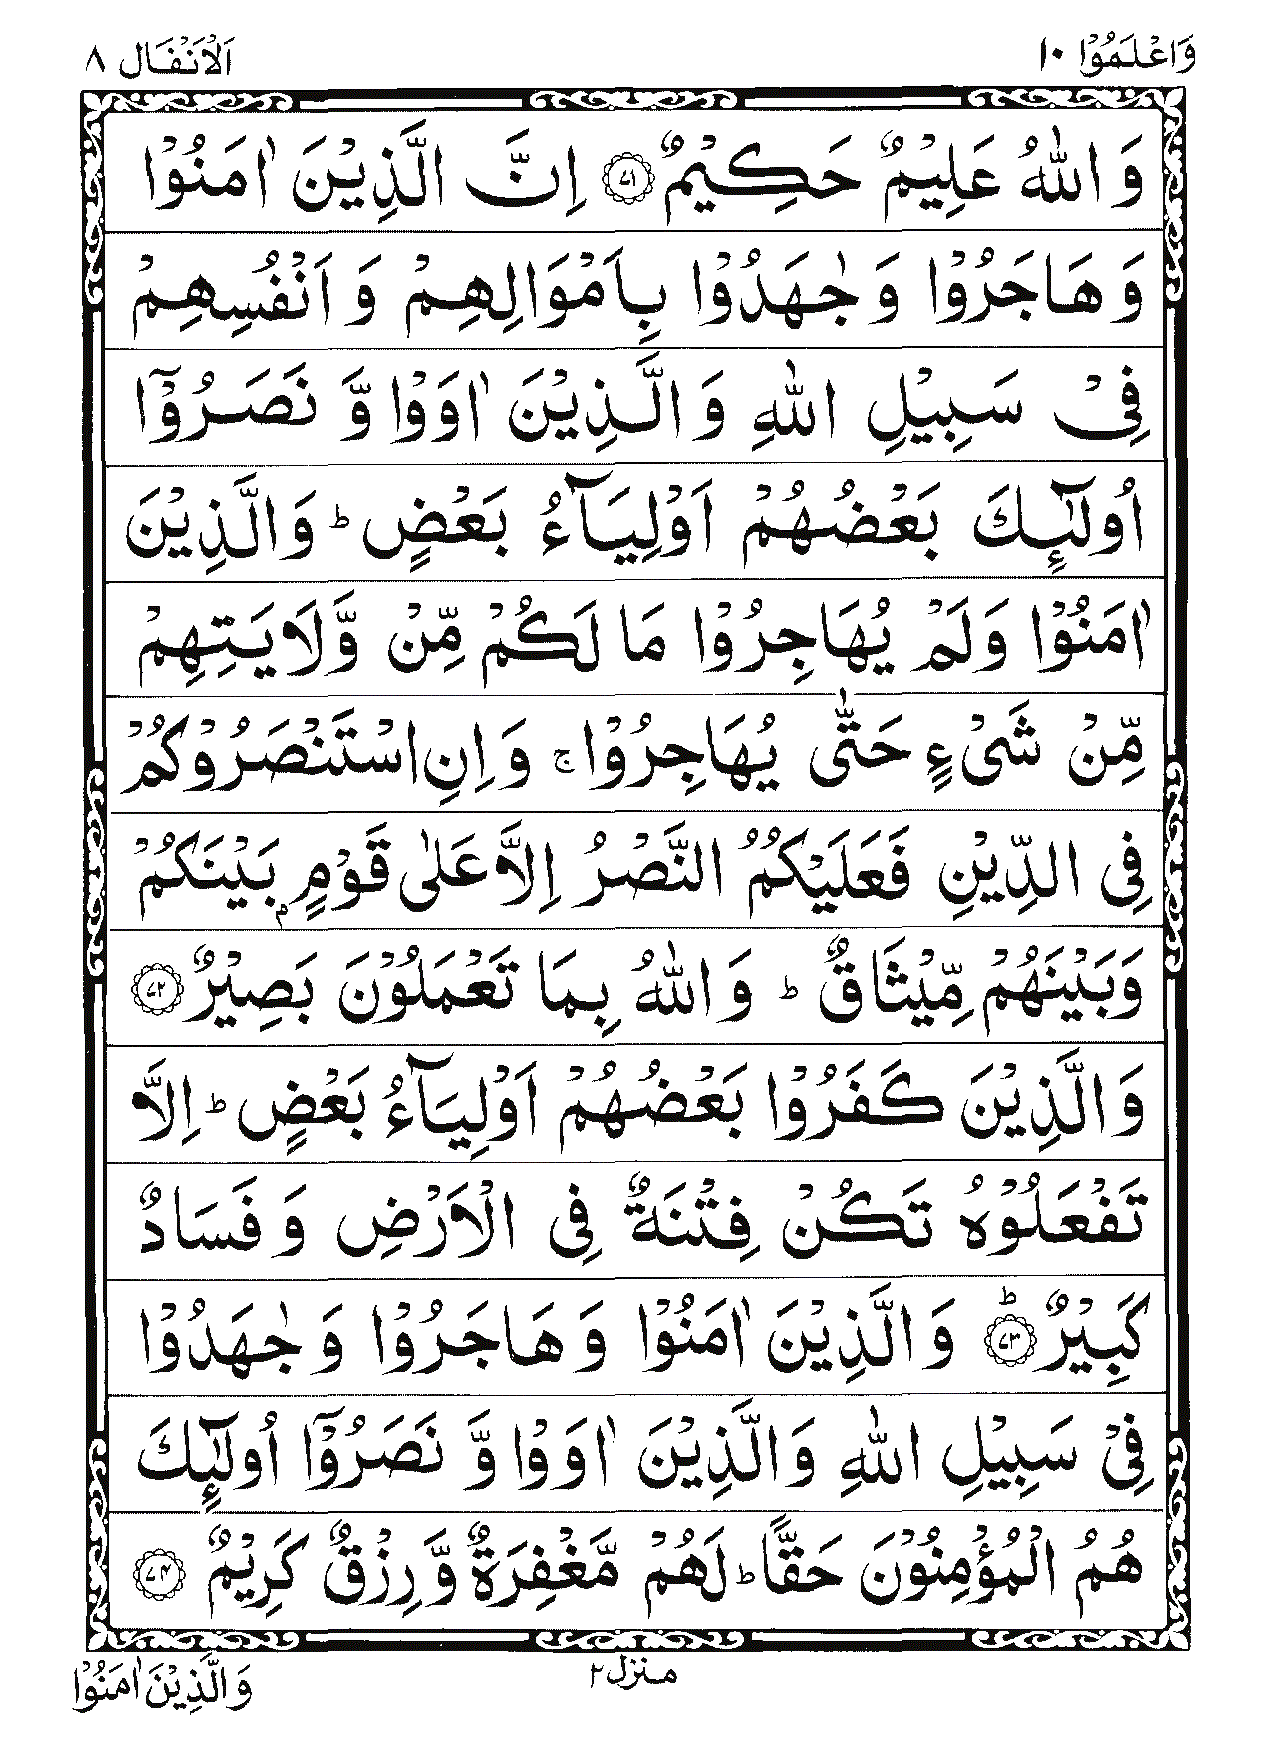 وَاعْلَمُوْا ١٠ اَلْاَنْفَال ٨
وَ اللّٰهُ عَلِيْمٌ حَكِيْمٌ ﴿٧١﴾ اِنَّ الَّذِيْنَ اٰمَنُوْا
وَ هَاجَرُوْا وَ جٰهَدُوْا بِاَمْوَالِهِمْ وَ اَنْفُسِهِمْ
فِيْ سَبِيْلِ اللّٰهِ وَ الَّذِيْنَ اٰوَوْا وَّ نَصَرُوْۤا
اُولٰٓئِكَ بَعْضُهُمْ اَوْلِيَآءُ بَعْضٍ ؕ وَالَّذِيْنَ
اٰمَنُوْا وَلَمْ يُهَاجِرُوْا مَا لَكُمْ مِّنْ وَّلَايَتِهِمْ
مِّنْ شَيْءٍ حَتّٰى يُهَاجِرُوْا ۚ وَ اِنِ اسْتَنْصَرُوْكُمْ
فِى الدِّيْنِ فَعَلَيْكُمُ النَّصْرُ اِلَّا عَلٰى قَوْمٍۭ بَيْنَكُمْ
وَبَيْنَهُمْ مِّيْثَاقٌ ؕ وَ اللّٰهُ بِمَا تَعْمَلُوْنَ بَصِيْرٌ ﴿٧٢﴾
وَ الَّذِيْنَ كَفَرُوْا بَعْضُهُمْ اَوْلِيَآءُ بَعْضٍ ؕ اِلَّا
تَفْعَلُوْهُ تَكُنْ فِتْنَةٌ فِى الْاَرْضِ وَ فَسَادٌ
كَبِيْرٌ ﴿٧٣﴾ؕ وَ الَّذِيْنَ اٰمَنُوْا وَ هَاجَرُوْا وَ جٰهَدُوْا
فِيْ سَبِيْلِ اللّٰهِ وَالَّذِيْنَ اٰوَوْا وَّ نَصَرُوْۤا اُولٰٓئِكَ
هُمُ الْمُؤْمِنُوْنَ حَقًّا ؕ لَهُمْ مَّغْفِرَةٌ وَّ رِزْقٌ كَرِيْمٌ ﴿٧٤﴾
منزل ٢
وَالَّذِيْنَ اٰمَنُوْا